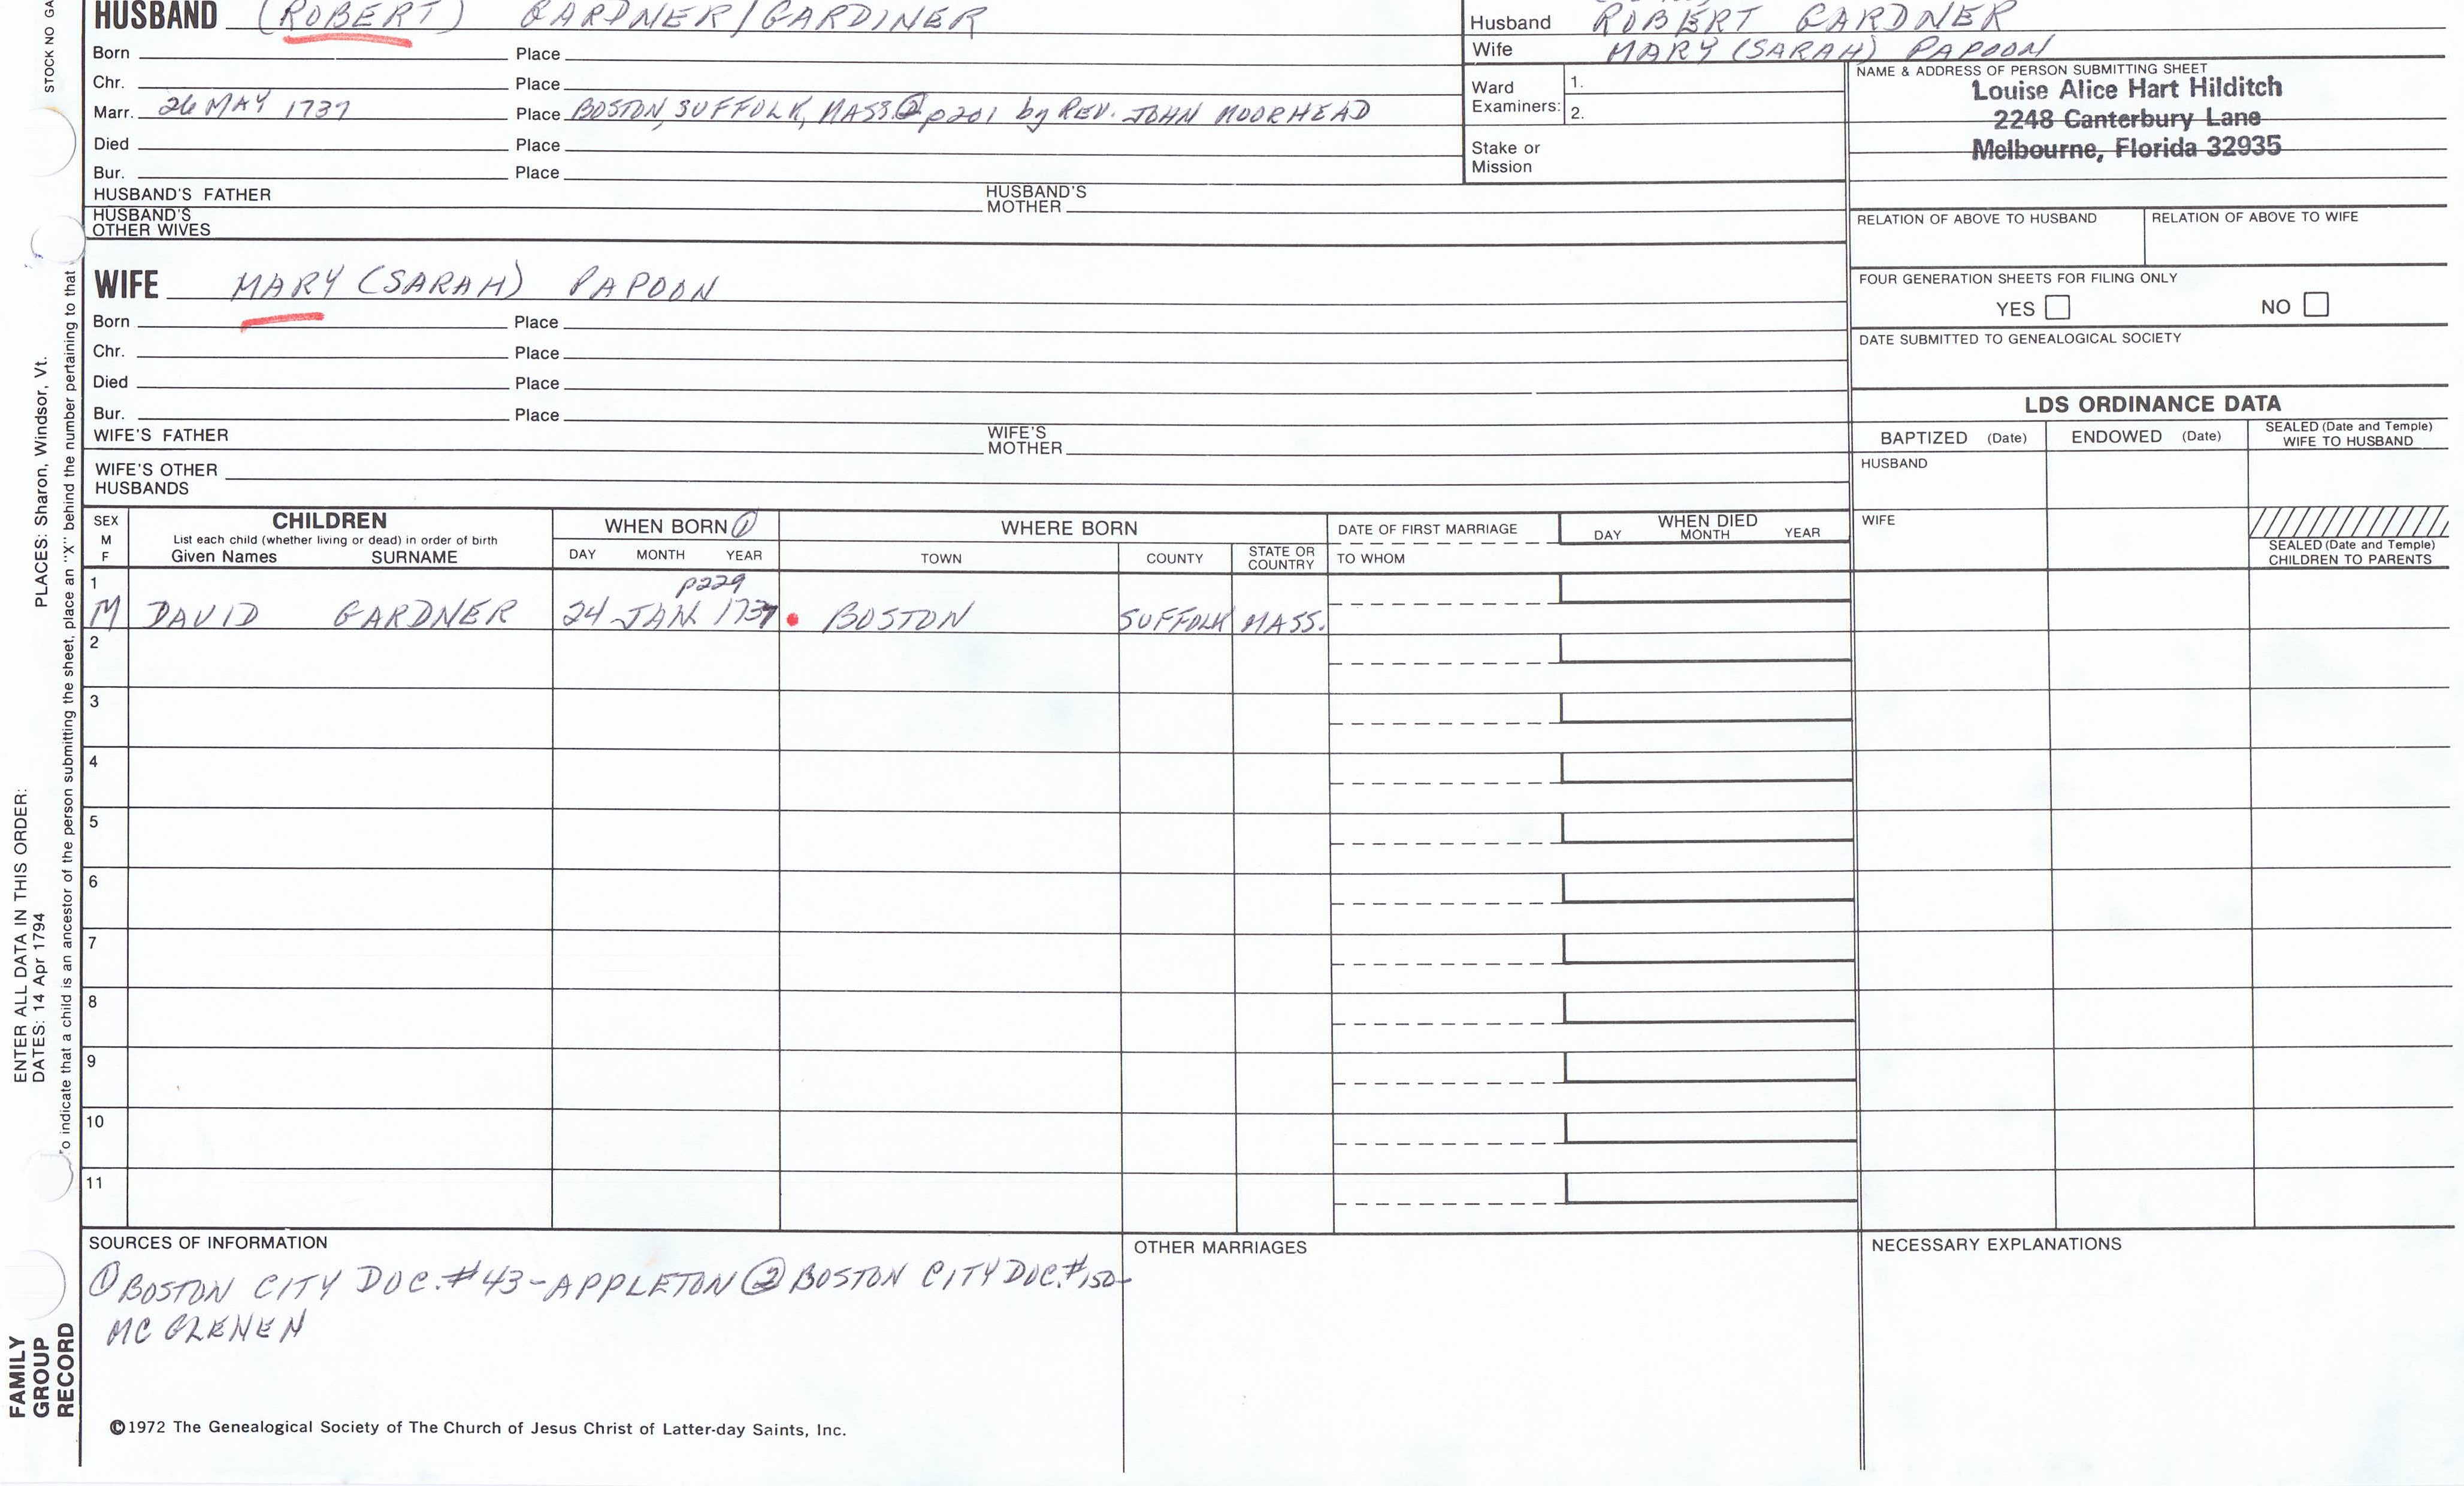 STOCK NO GA
HUSBAND (ROBERT) GARDNER/GARDINER
Born Place
Chr. Place
Marr. 26 MAY 1737 Place BOSTON, SUFFOLK, MASS. ② p201 by REV. JOHN MOORHEAD
Died Place
Bur. Place
HUSBAND'S FATHER HUSBAND'S MOTHER
HUSBAND'S
OTHER WIVES
Husband ROBERT GARDNER
Wife MARY (SARAH) PAPOON
Ward
Examiners: 1.
2.
Stake or
Mission
NAME & ADDRESS OF PERSON SUBMITTING SHEET
Louise Alice Hart Hilditch
2248 Canterbury Lane
Melbourne, Florida 32935
RELATION OF ABOVE TO HUSBAND RELATION OF ABOVE TO WIFE
FOUR GENERATION SHEETS FOR FILING ONLY
YES NO
DATE SUBMITTED TO GENEALOGICAL SOCIETY
WIFE MARY (SARAH) PAPOON
Born Place
Chr. Place
Died Place
Bur. Place
WIFE'S FATHER WIFE'S MOTHER
WIFE'S OTHER
HUSBANDS
LDS ORDINANCE DATA
BAPTIZED (Date) ENDOWED (Date) SEALED (Date and Temple)
WIFE TO HUSBAND
HUSBAND
WIFE
SEALED (Date and Temple)
CHILDREN TO PARENTS
SEX
M
F
CHILDREN
List each child (whether living or dead) in order of birth
Given Names SURNAME
WHEN BORN ①
DAY MONTH YEAR
WHERE BORN
TOWN COUNTY STATE OR
COUNTRY
DATE OF FIRST MARRIAGE
TO WHOM
WHEN DIED
DAY MONTH YEAR
1 p229
M DAVID GARDNER 24 JAN 1737 BOSTON SUFFOLK MASS.
2
3
4
5
6
7
8
9
10
11
SOURCES OF INFORMATION
① BOSTON CITY DOC. #43-APPLETON ② BOSTON CITY DOC. #150-
MC GLENEN
OTHER MARRIAGES
NECESSARY EXPLANATIONS
©1972 The Genealogical Society of The Church of Jesus Christ of Latter-day Saints, Inc.
FAMILY
GROUP
RECORD
ENTER ALL DATA IN THIS ORDER:
DATES: 14 Apr 1794 PLACES: Sharon, Windsor, Vt.
To indicate that a child is an ancestor of the person submitting the sheet, place an "X" behind the number pertaining to that